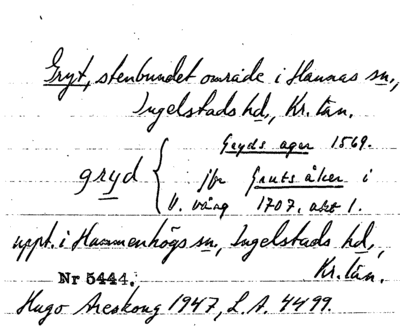 Gryt, stenbundet område i Hannas sn.,
Ingelstads hd, Kr. län.
Gryds ager 1569.
gryd { jfr Gruts åker i
V. vång 1707, akt 1.
uppt. i Hammenhögs sn, Ingelstads hd,
Kr. län.
Nr 5444.
Hugo Areskoug 1947, L.A. 4499.